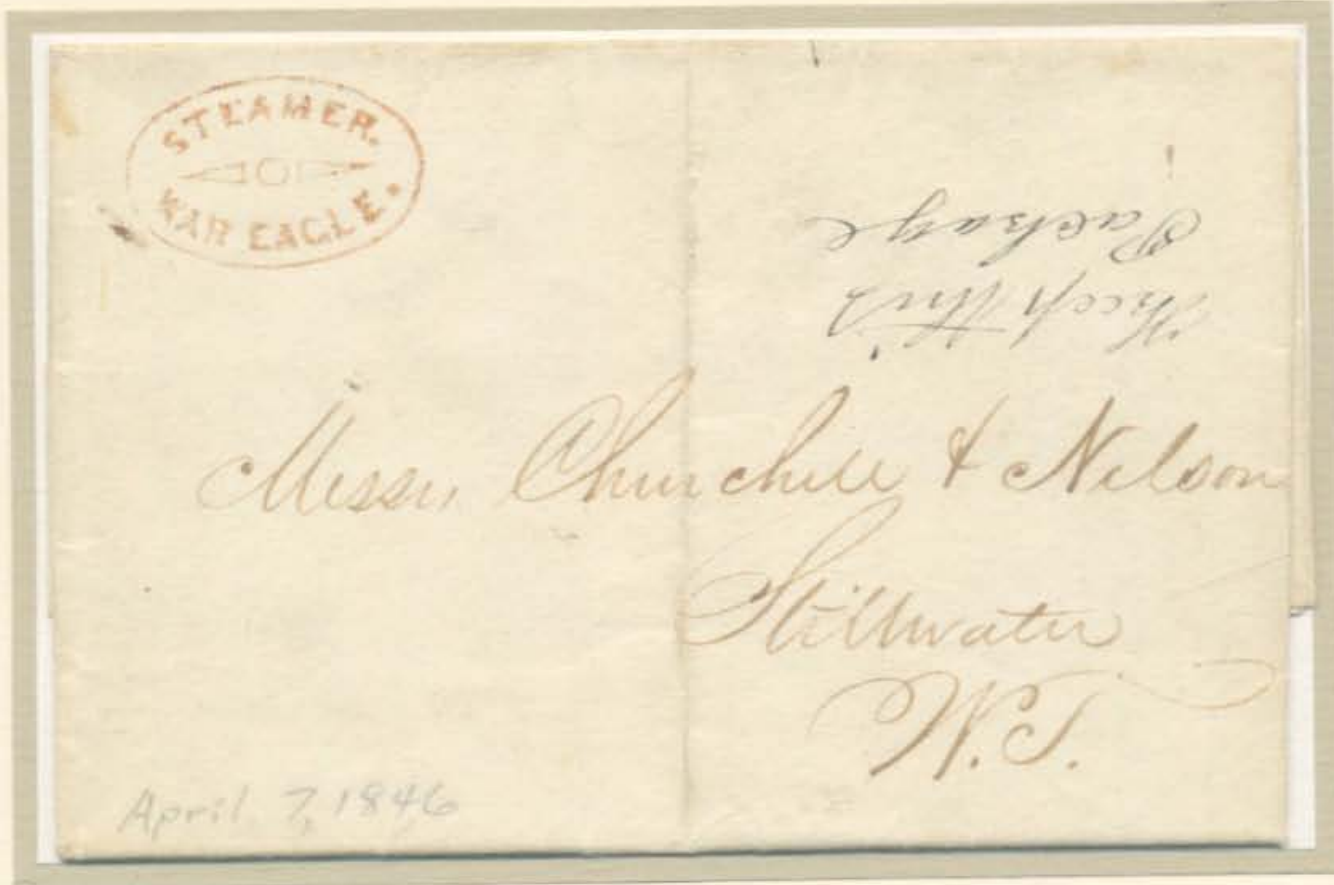 STEAMER.
WAR EAGLE.
Keep this
Package
Messrs, Churchill & Nelson
Stillwater
W.T.
April 7, 1846